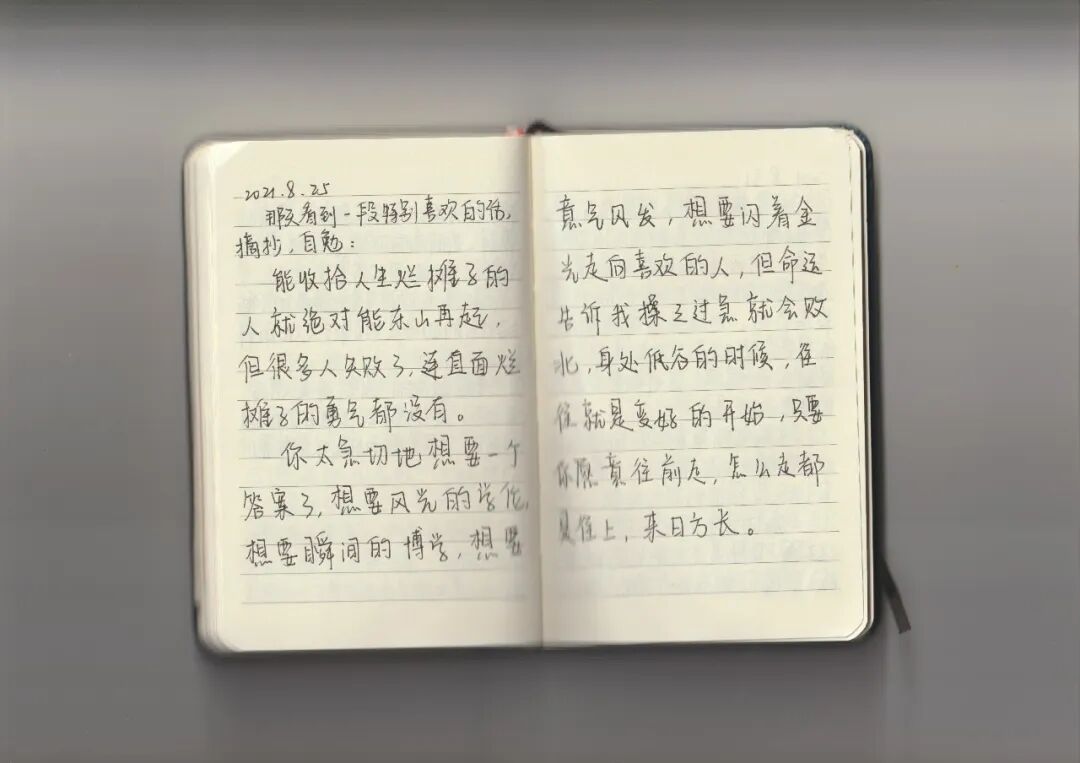 2021.8.25
那天看到一段特别喜欢的话,
摘抄,自勉:
能收拾人生烂摊子的
人就绝对能东山再起,
但很多人失败了,连直面烂
摊子的勇气都没有。
你太急切地想要一个
答案了,想要风光的学位,
想要瞬间的博学,想要
意气风发,想要闪着金
光走向喜欢的人,但命运
告诉我操之过急就会败
北,身处低谷的时候,往
往就是变好的开始,只要
你愿意往前走,怎么走都
是往上,来日方长。